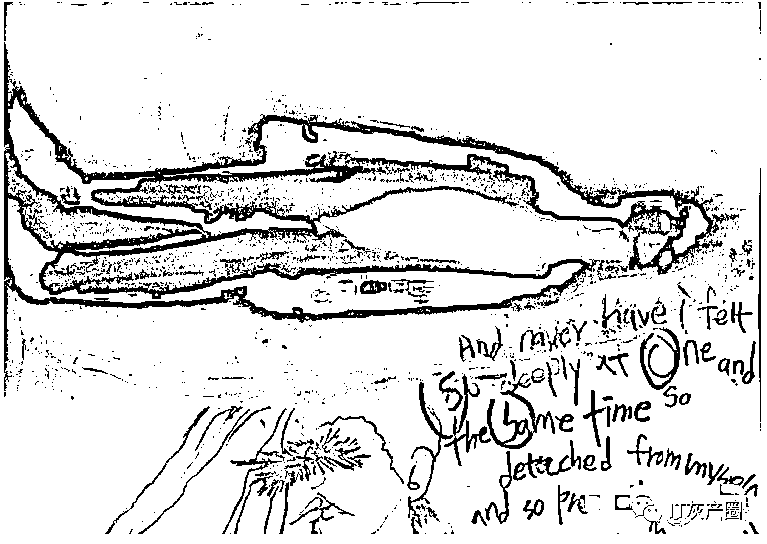 And never have I felt
So deeply at One and
the Same time so
detached from myself
and so pre
IT灰产圈